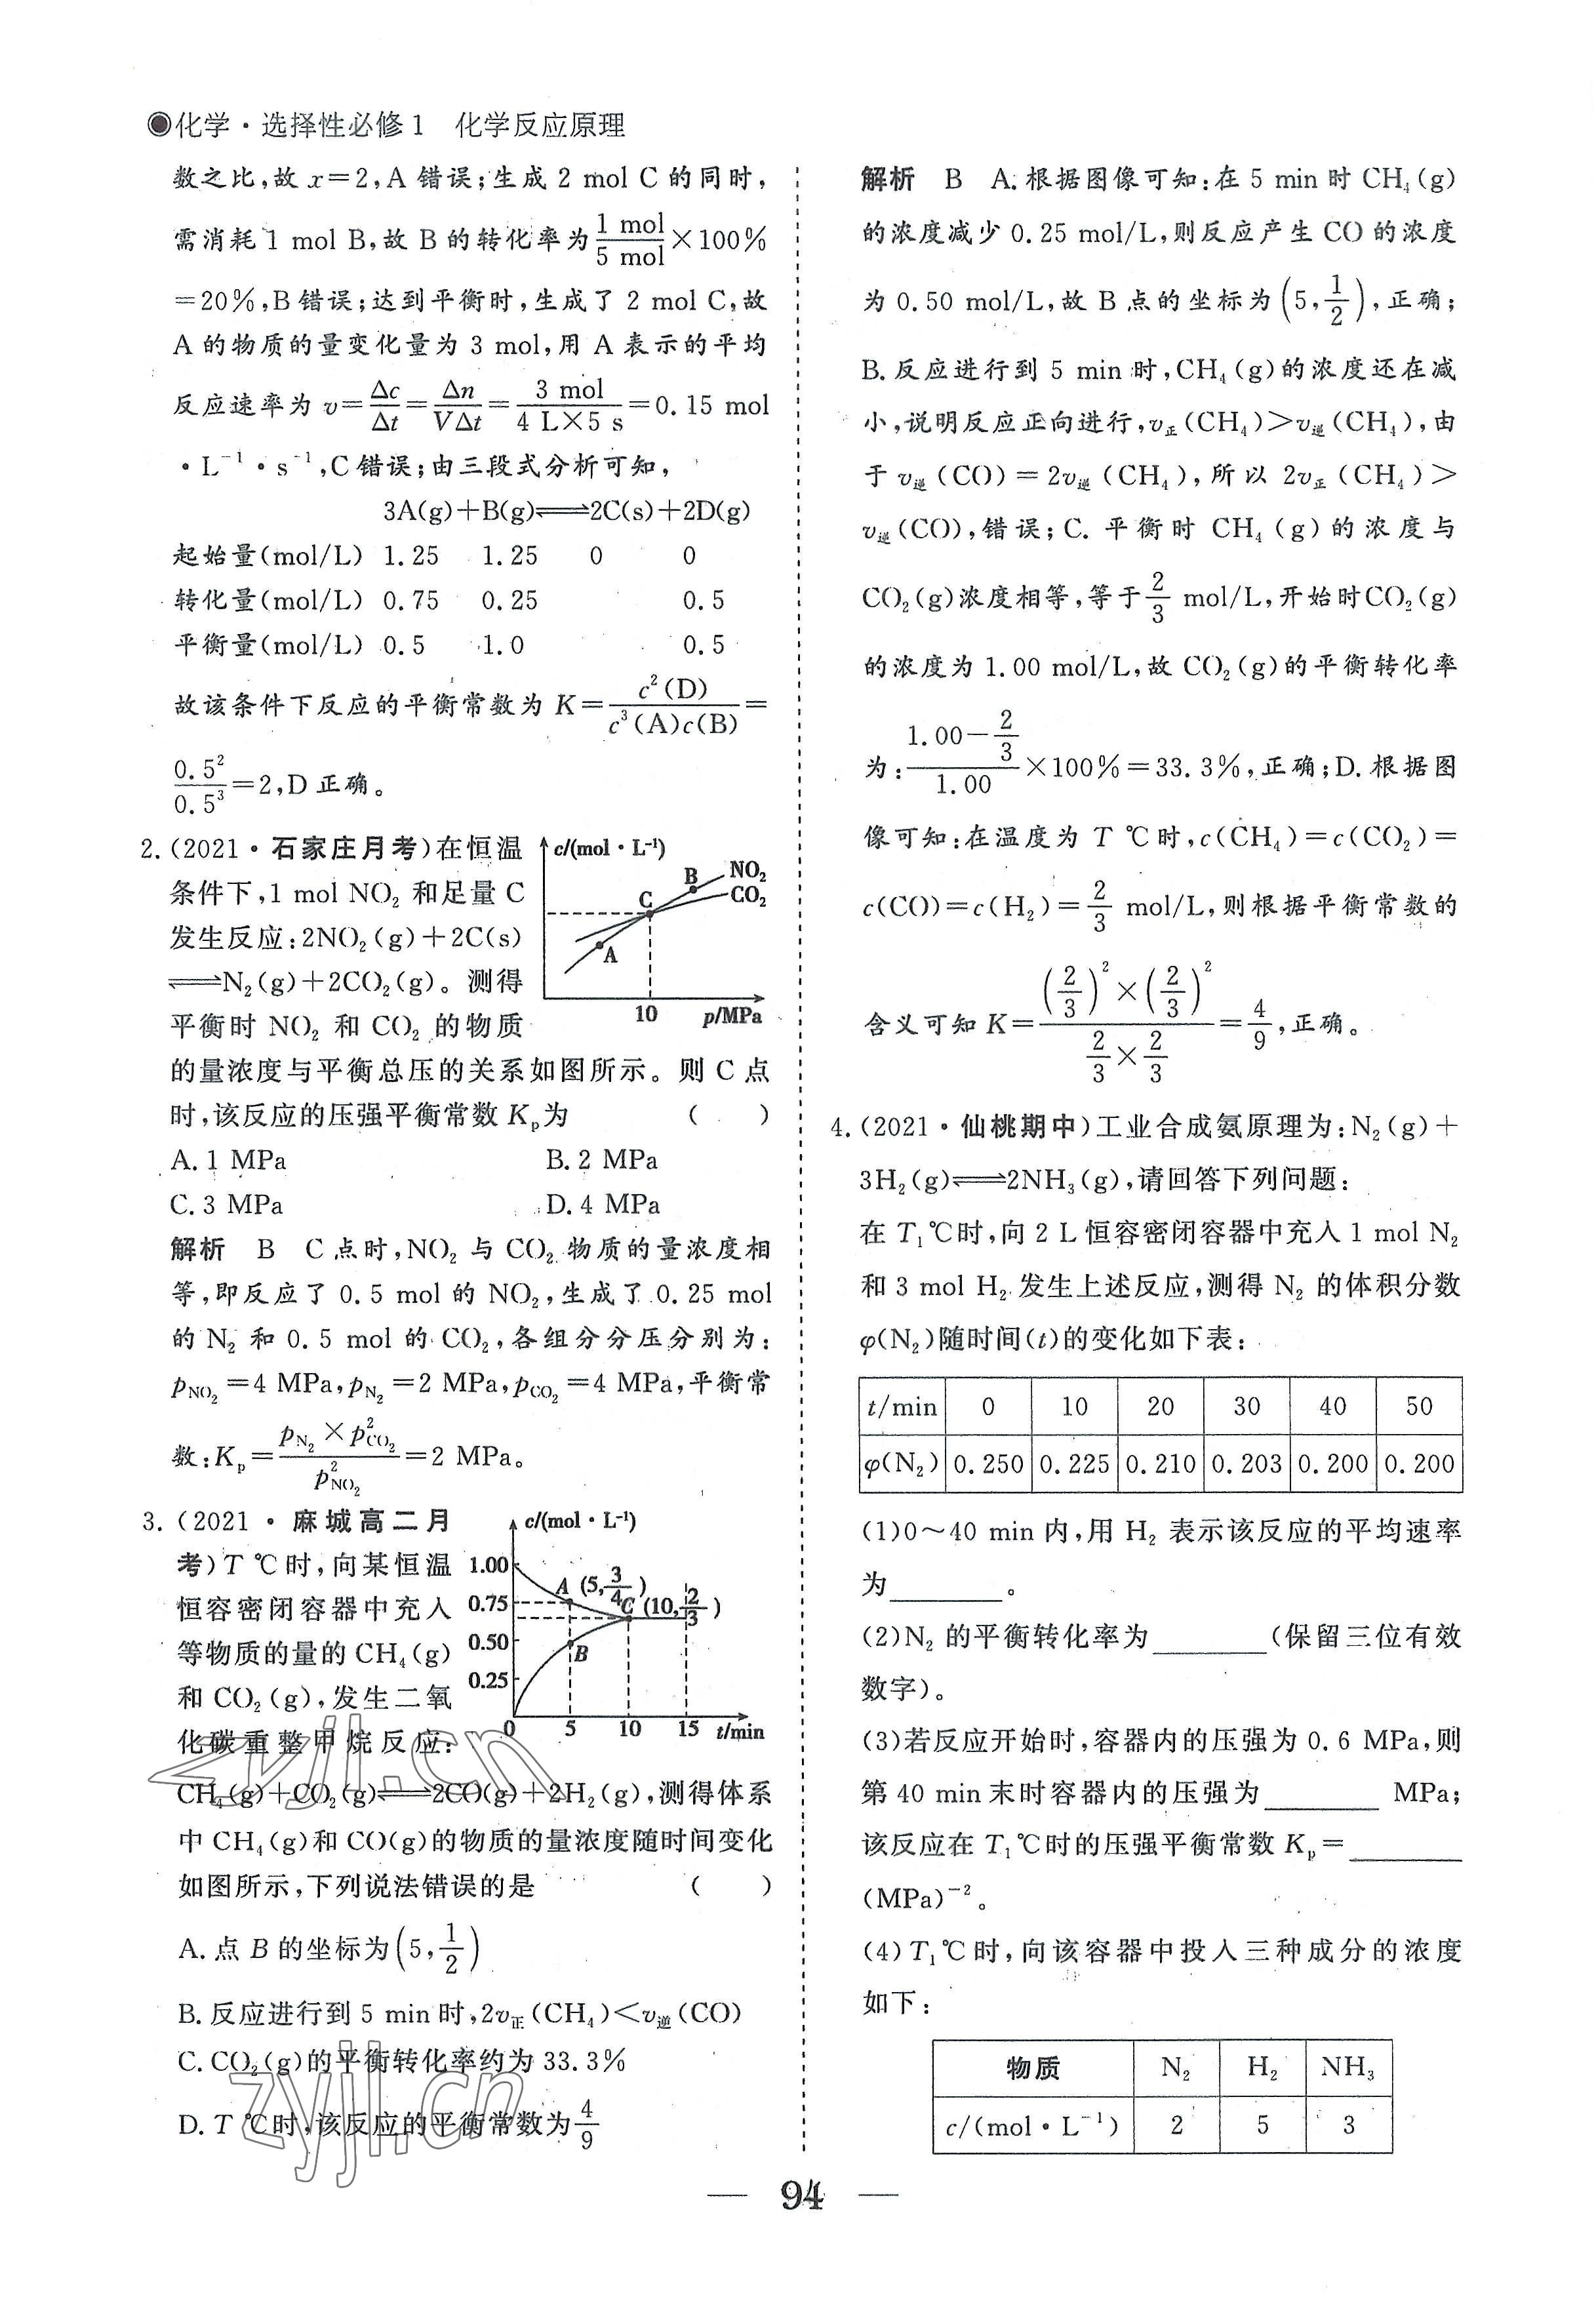 化学·选择性必修1 化学反应原理
数之比,故 x=2,A 错误;生成 2 mol C 的同时,
需消耗 1 mol B,故 B 的转化率为 1 mol/5 mol ×100%
=20%,B 错误;达到平衡时,生成了 2 mol C,故
A 的物质的量变化量为 3 mol,用 A 表示的平均
反应速率为 v=Δc/Δt=Δn/VΔt=3 mol/(4 L×5 s)=0.15 mol
·L⁻¹·s⁻¹,C 错误;由三段式分析可知,
3A(g)+B(g)⇌2C(s)+2D(g)
起始量(mol/L) 1.25 1.25 0 0
转化量(mol/L) 0.75 0.25 0.5
平衡量(mol/L) 0.5 1.0 0.5
故该条件下反应的平衡常数为 K=c²(D)/(c³(A)c(B))=
0.5²/0.5³=2,D 正确。
2.(2021·石家庄月考)在恒温
条件下,1 mol NO₂ 和足量 C
发生反应:2NO₂(g)+2C(s)
⇌N₂(g)+2CO₂(g)。测得
平衡时 NO₂ 和 CO₂ 的物质
的量浓度与平衡总压的关系如图所示。则 C 点
时,该反应的压强平衡常数 Kₚ为 ( )
c/(mol·L⁻¹)
NO₂
CO₂
B
C
A
10 p/MPa
A.1 MPa B.2 MPa
C.3 MPa D.4 MPa
解析 B C 点时,NO₂ 与 CO₂ 物质的量浓度相
等,即反应了 0.5 mol 的 NO₂,生成了 0.25 mol
的 N₂ 和 0.5 mol 的 CO₂,各组分分压分别为:
p_NO₂=4 MPa,p_N₂=2 MPa,p_CO₂=4 MPa,平衡常
数:Kₚ=(p_N₂×p²_CO₂)/p²_NO₂=2 MPa。
3.(2021·麻城高二月
考)T ℃时,向某恒温
恒容密闭容器中充入
等物质的量的 CH₄(g)
和 CO₂(g),发生二氧
化碳重整甲烷反应:
CH₄(g)+CO₂(g)⇌2CO(g)+2H₂(g),测得体系
中 CH₄(g)和 CO(g)的物质的量浓度随时间变化
如图所示,下列说法错误的是 ( )
c/(mol·L⁻¹)
1.00
0.75
0.50
0.25
0 5 10 15 t/min
A (5,3/4)
C (10,2/3)
B
A.点 B 的坐标为(5,1/2)
B.反应进行到 5 min 时,2v正(CH₄)<v逆(CO)
C.CO₂(g)的平衡转化率约为 33.3%
D.T ℃时,该反应的平衡常数为4/9
zyjl.cn
zyjl.cn
解析 B A.根据图像可知:在 5 min 时 CH₄(g)
的浓度减少 0.25 mol/L,则反应产生 CO 的浓度
为 0.50 mol/L,故 B 点的坐标为(5,1/2),正确;
B.反应进行到 5 min 时,CH₄(g)的浓度还在减
小,说明反应正向进行,v正(CH₄)>v逆(CH₄),由
于 v逆(CO)=2v逆(CH₄),所以 2v正(CH₄)>
v逆(CO),错误;C.平衡时 CH₄(g)的浓度与
CO₂(g)浓度相等,等于2/3 mol/L,开始时CO₂(g)
的浓度为 1.00 mol/L,故 CO₂(g)的平衡转化率
为:(1.00−2/3)/1.00×100%=33.3%,正确;D.根据图
像可知:在温度为 T ℃时,c(CH₄)=c(CO₂)=
c(CO)=c(H₂)=2/3 mol/L,则根据平衡常数的
含义可知 K=((2/3)²×(2/3)²)/(2/3×2/3)=4/9,正确。
4.(2021·仙桃期中)工业合成氨原理为:N₂(g)+
3H₂(g)⇌2NH₃(g),请回答下列问题:
在 T₁℃时,向 2 L 恒容密闭容器中充入 1 mol N₂
和 3 mol H₂ 发生上述反应,测得 N₂ 的体积分数
φ(N₂)随时间(t)的变化如下表:
t/min 0 10 20 30 40 50
φ(N₂) 0.250 0.225 0.210 0.203 0.200 0.200
(1)0~40 min 内,用 H₂ 表示该反应的平均速率
为________。
(2)N₂ 的平衡转化率为________(保留三位有效
数字)。
(3)若反应开始时,容器内的压强为 0.6 MPa,则
第 40 min 末时容器内的压强为________ MPa;
该反应在 T₁℃时的压强平衡常数 Kₚ=________
(MPa)⁻²。
(4)T₁℃时,向该容器中投入三种成分的浓度
如下:
物质 N₂ H₂ NH₃
c/(mol·L⁻¹) 2 5 3
— 94 —